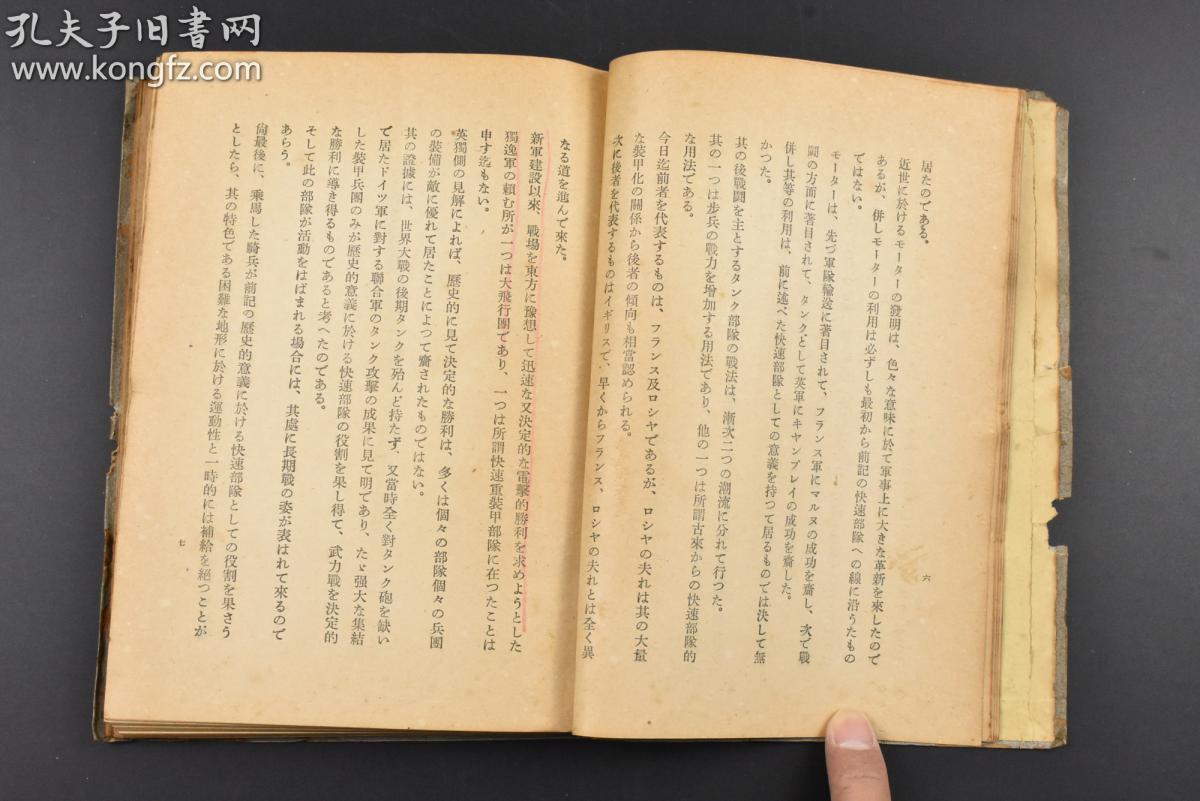 孔夫子旧书网
www.kongfz.com
六
居たのである。
近世に於けるモーターの發明は、色々な意味に於て軍事上に大きな革新を來したので
あるが、併しモーターの利用は必ずしも最初から前記の快速部隊への線に沿うたもの
ではない。
モーターは、先づ軍隊輸送に著目されて、フランス軍にマルヌの成功を齎し、次で戰
鬪の方面に著目されて、タンクとして英軍にキヤンブレイの成功を齎した。
併し其等の利用は、前に述べた快速部隊としての意義を持つて居るものでは決して無
かつた。
其の後戰鬪を主とするタンク部隊の戰法は、漸次二つの潮流に分れて行つた。
其の一つは步兵の戰力を增加する用法であり、他の一つは所謂古來からの快速部隊的
な用法である。
今日迄前者を代表するものは、フランス及ロシヤであるが、ロシヤの夫れは其の大量
な裝甲化の關係から後者の傾向も相當認められる。
次に後者を代表するものはイギリスで、早くからフランス、ロシヤの夫れとは全く異
なる道を進んで來た。
新軍建設以來、戰場を東方に豫想して迅速な又決定的な電擊的勝利を求めようとした
獨逸軍の賴む所が一つは大飛行團であり、一つは所謂快速重裝甲部隊に在つたことは
申す迄もない。
英獨側の見解によれば、歷史的に見て決定的な勝利は、多くは個々の部隊個々の兵團
の裝備が敵に優れて居たことによつて齎されたものではない。
其の證據には、世界大戰の後期タンクを殆んど持たず、又當時全く對タンク砲を缺い
で居たドイツ軍に對する聯合軍のタンク攻擊の成果に見て明であり、たゞ强大な集結
した裝甲兵團のみが歷史的意義に於ける快速部隊の役割を果し得て、武力戰を決定的
な勝利に導き得るものであると考へたのである。
そして此の部隊が活動をはばまれる場合には、其處に長期戰の姿が表はれて來るので
あらう。
尙最後に、乘馬した騎兵が前記の歷史的意義に於ける快速部隊としての役割を果さう
としたら、其の特色である困難な地形に於ける運動性と一時的には補給を絕つことが
七